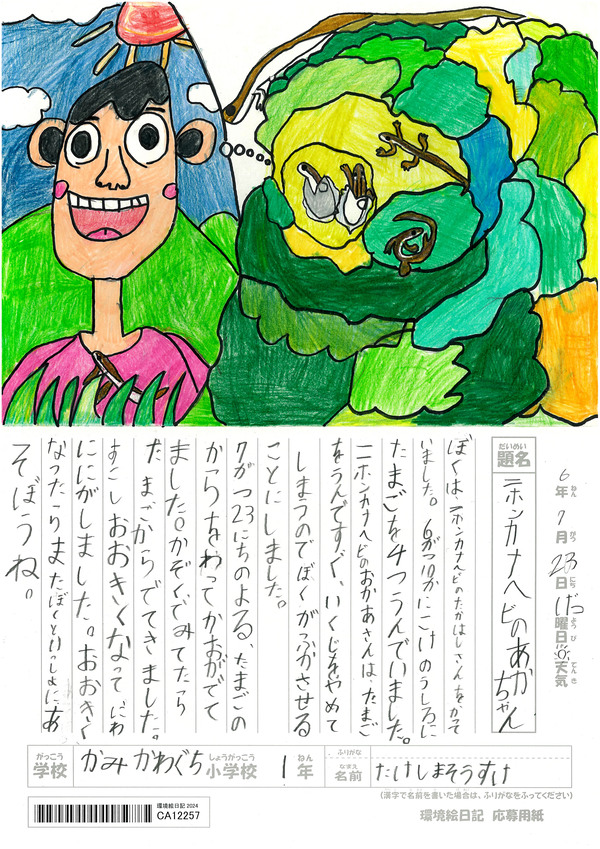 6年7月23日曜日天気
ねん がつ にち ようび てんき
だいめい
題名
ニホンカナヘビのあかちゃん
ぼくは、ニホンカナヘビのたかはしさんをかって
いました。6がつ10かにこけのうしろに
たまごを4つうんでいました。
ニホンカナヘビのおかあさんは、たまご
をうんですぐ、いくじをやめて
しまうのでぼくがふかさせる
ことにしました。
7がつ23にちのよる、たまごの
からをわってかおがでて
ました。かぞくでみてたら
たまごからでてきました。
すこしおおきくなって にわ
ににがしました。おおきく
なったらまたぼくといっしょにあ
そぼうね。
がっこう しょうがっこう ねん ふりがな なまえ
学校 かみかわぐち小学校 1年 名前 たけしまそうすけ
(漢字で名前を書いた場合は、ふりがなをふってください)
環境絵日記 2024
CA12257
環境絵日記 応募用紙